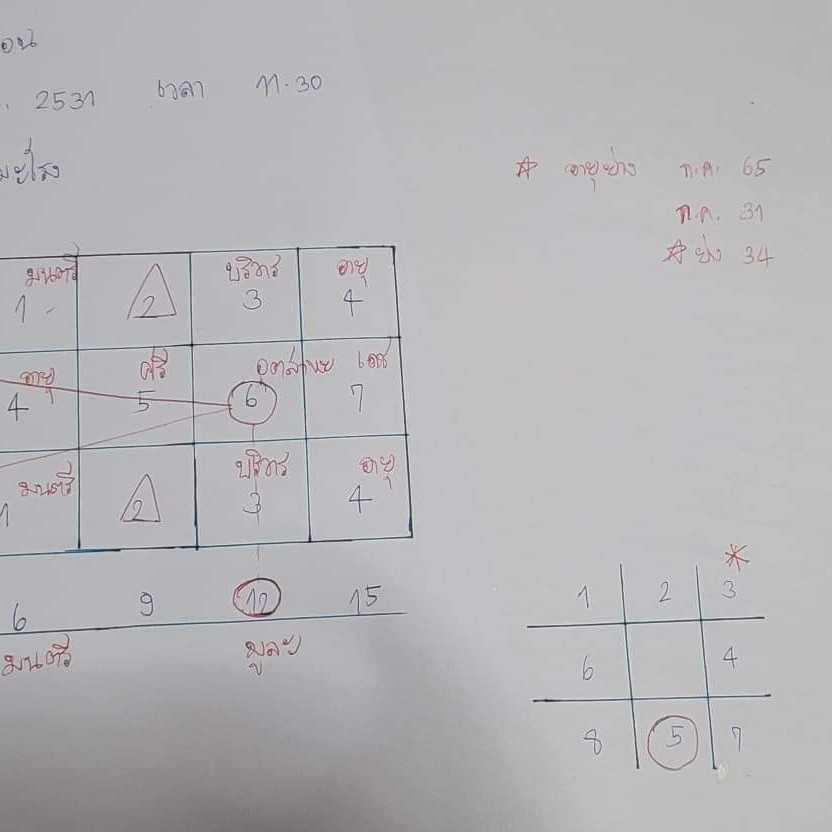 2531 เวลา 11.30
มะโรง
* อายุย่าง ก.ค. 65
ก.ค. 31
* ย่าง 34
มนตรี บริวาร อายุ
1 2 3 4
อายุ ศรี อุตสาหะ เดช
4 5 6 7
มนตรี บริวาร อายุ
1 2 3 4
6 9 12 15
มนตรี มูละ
*
1 2 3
6 4
8 5 7